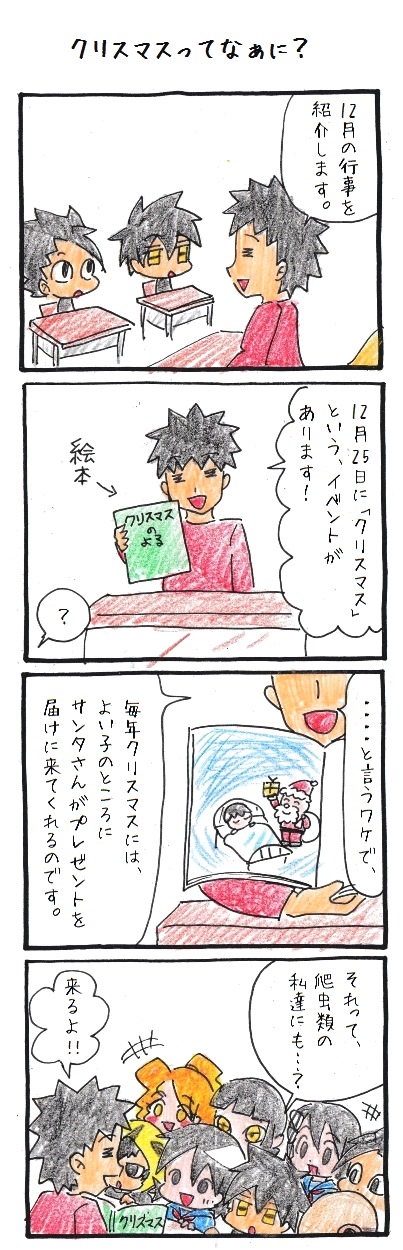 クリスマスってなぁに？
12月の行事を
紹介します。
12月25日に「クリスマス」
という、イベントが
あります！
絵本
クリスマス
の
よる
？
‥‥と言うワケで、
毎年クリスマスには、
よい子のところに
サンタさんがプレゼントを
届けに来てくれるのです。
それって、
爬虫類の
私達にも‥？
来るよ!!
クリスマス